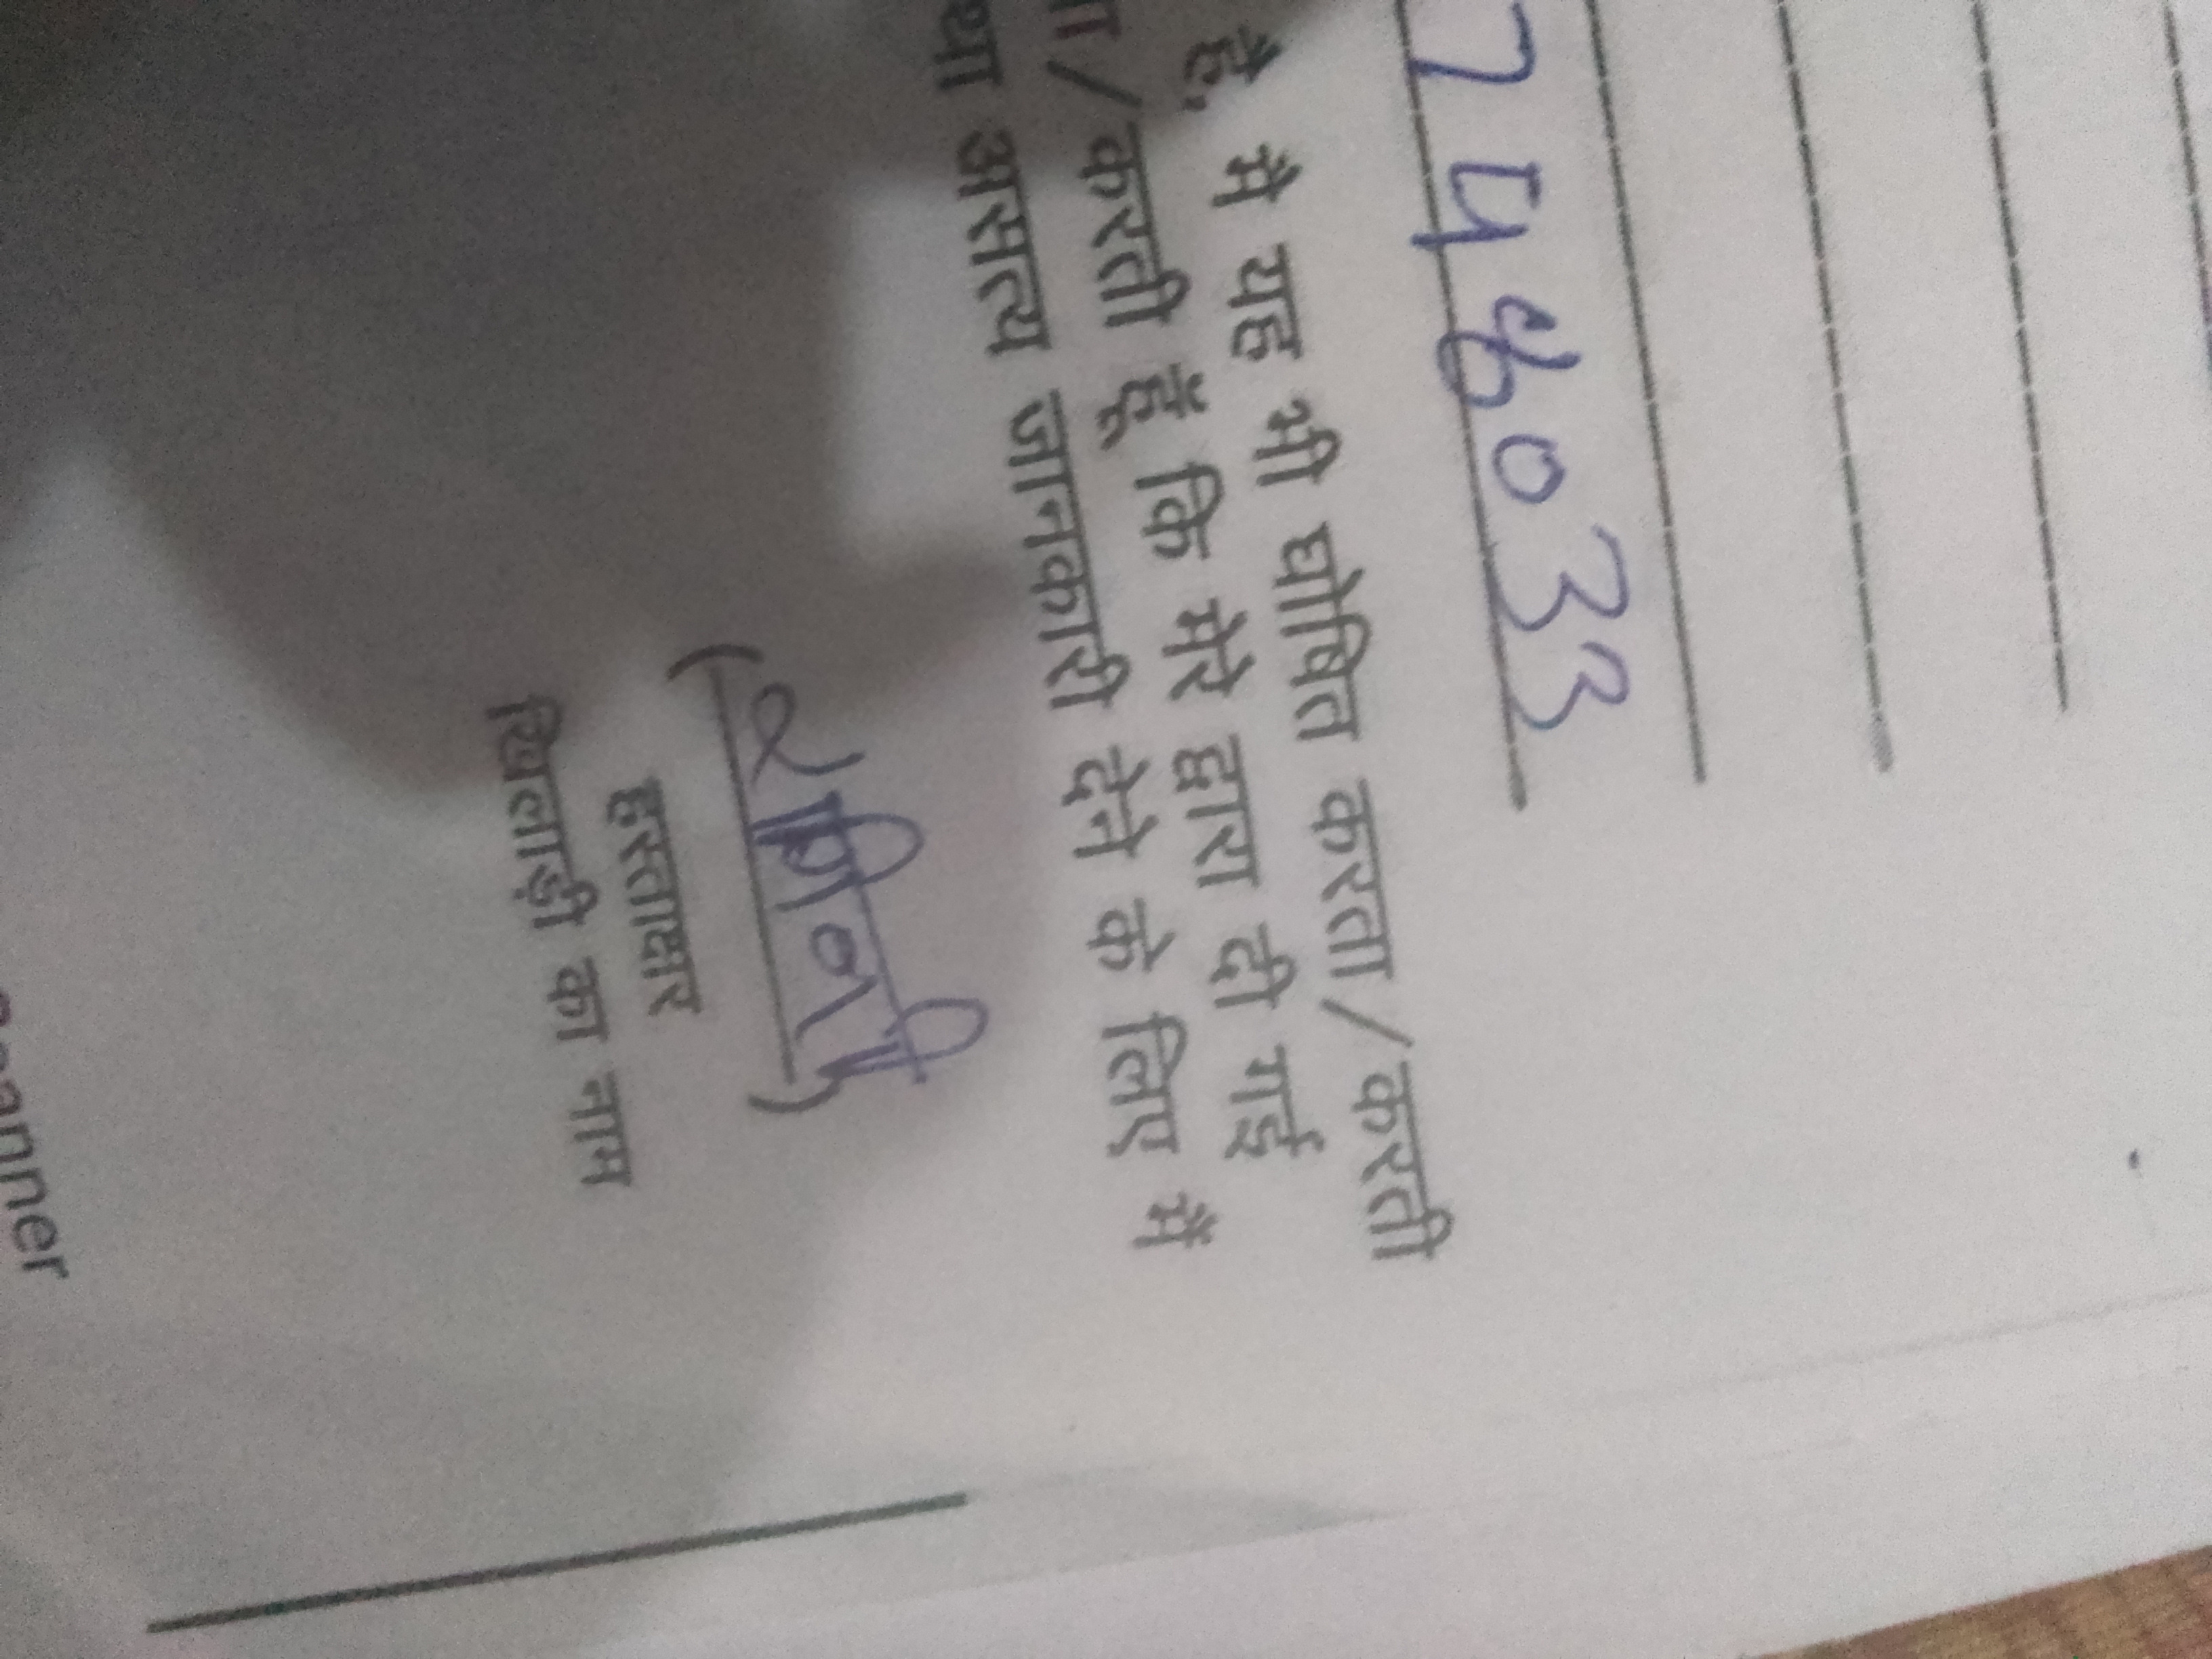 7 4 6 0 3 3
है, मै यह भी घोषित करता/करती
/करती हूँ कि मेरे द्वारा दी गई
असत्य जानकारी देने के लिए में
हस्ताक्षर
खिलाड़ी का नाम